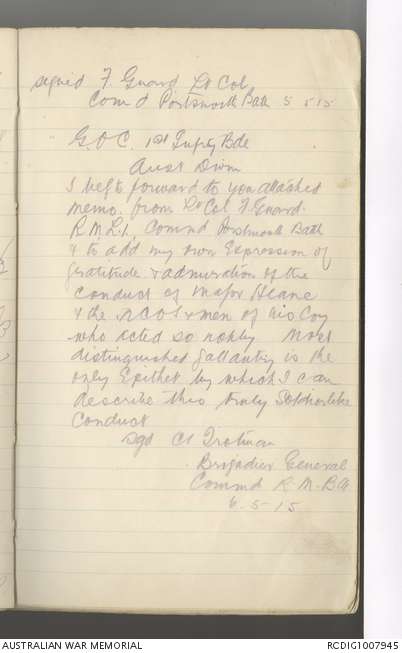 signed F Guard Lt Col
Comd Portsmouth Batt 5 5 15
G.O.C. 1st Infty Bde
Aust Divn
I beg to forward to you attached
memo. from Lt Col F Guard
R.M.L.I. Commd Portsmouth Batt
& to add my own Expression of
gratitude & admiration of the
conduct of Major Heane
& the NCOs & men of his Coy
who acted so nobly Most
distinguished gallantry is the
only Epithet by which I can
describe this truly Soldierlike
Conduct
sgd C Trotman
Brigadier General
Commd R.M.
6.5-15
AUSTRALIAN WAR MEMORIAL
RCDIG1007945